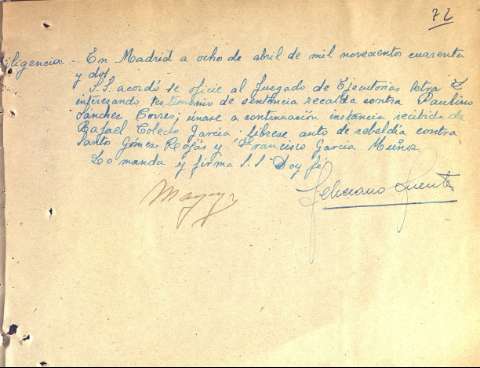 72
Diligencia - En Madrid a ocho de abril de mil novecientos cuarenta
y dos
S.S. acordó se oficie al Juzgado de Ejecutorias letra
interesando testimonio de sentencia recaída contra Paulino
Sánchez Torrejo; únase a continuación instancia recibida de
Rafael Toledo García; líbrese auto de rebeldía contra
Santos Gómez Rojas y Francisco García Muñoz
Lo manda y firma S.S. Doy fé
Feliciano Fuente